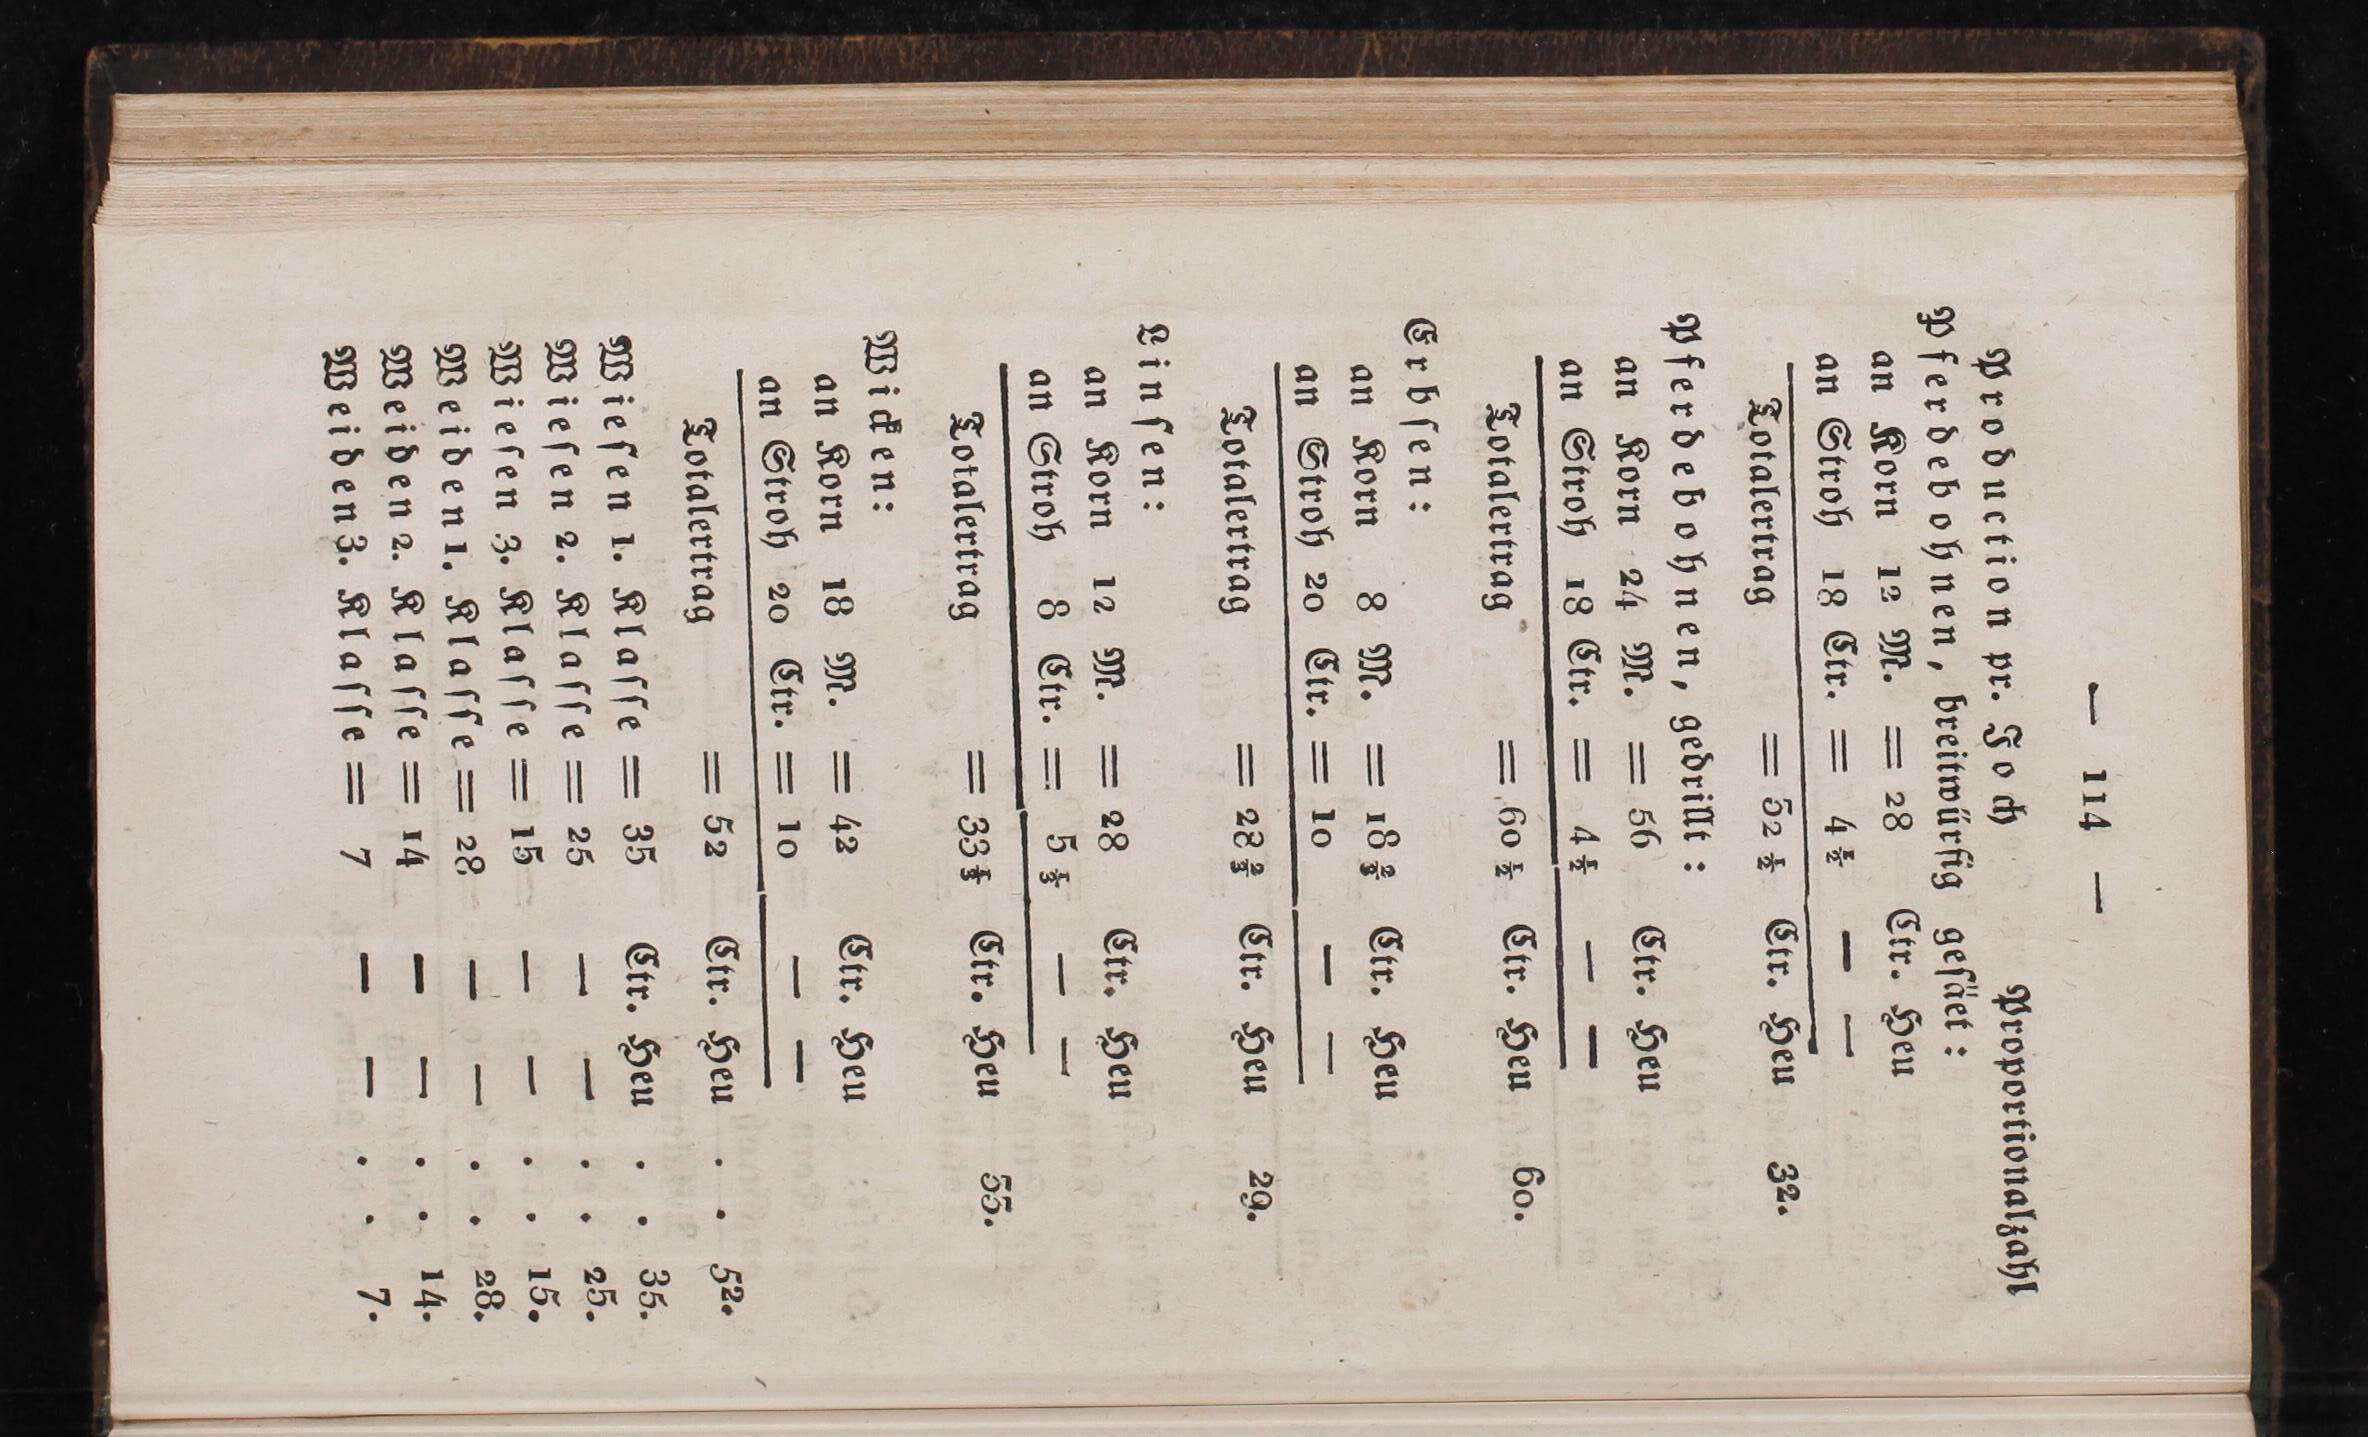 — 114 —
Production pr. Joch Proportionalzahl
Pferdebohnen, breitwürfig gesäet:
an Korn 12 M. = 28 Ctr. Heu
an Stroh 18 Ctr. = 4 1/2 — —
Totalertrag = 52 1/2 Ctr. Heu 32.
Pferdebohnen, gedrillt:
an Korn 24 M. = 56 Ctr. Heu
an Stroh 18 Ctr. = 4 1/2 — —
Totalertrag = 60 1/2 Ctr. Heu 60.
Erbsen:
an Korn 8 M. = 18 2/3 Ctr. Heu
an Stroh 20 Ctr. = 10 — —
Totalertrag = 28 2/3 Ctr. Heu 29.
Linsen:
an Korn 12 M. = 28 Ctr. Heu
an Stroh 8 Ctr. = 5 1/3 — —
Totalertrag = 33 1/3 Ctr. Heu 55.
Wicken:
an Korn 18 M. = 42 Ctr. Heu
an Stroh 20 Ctr. = 10 — —
Totalertrag = 52 Ctr. Heu . . 52.
Wiesen 1. Klasse = 35 Ctr. Heu . . 35.
Wiesen 2. Klasse = 25 — — . . 25.
Wiesen 3. Klasse = 15 — — . . 15.
Weiden 1. Klasse = 28 — — . . 28.
Weiden 2. Klasse = 14 — — . . 14.
Weiden 3. Klasse = 7 — — . . 7.